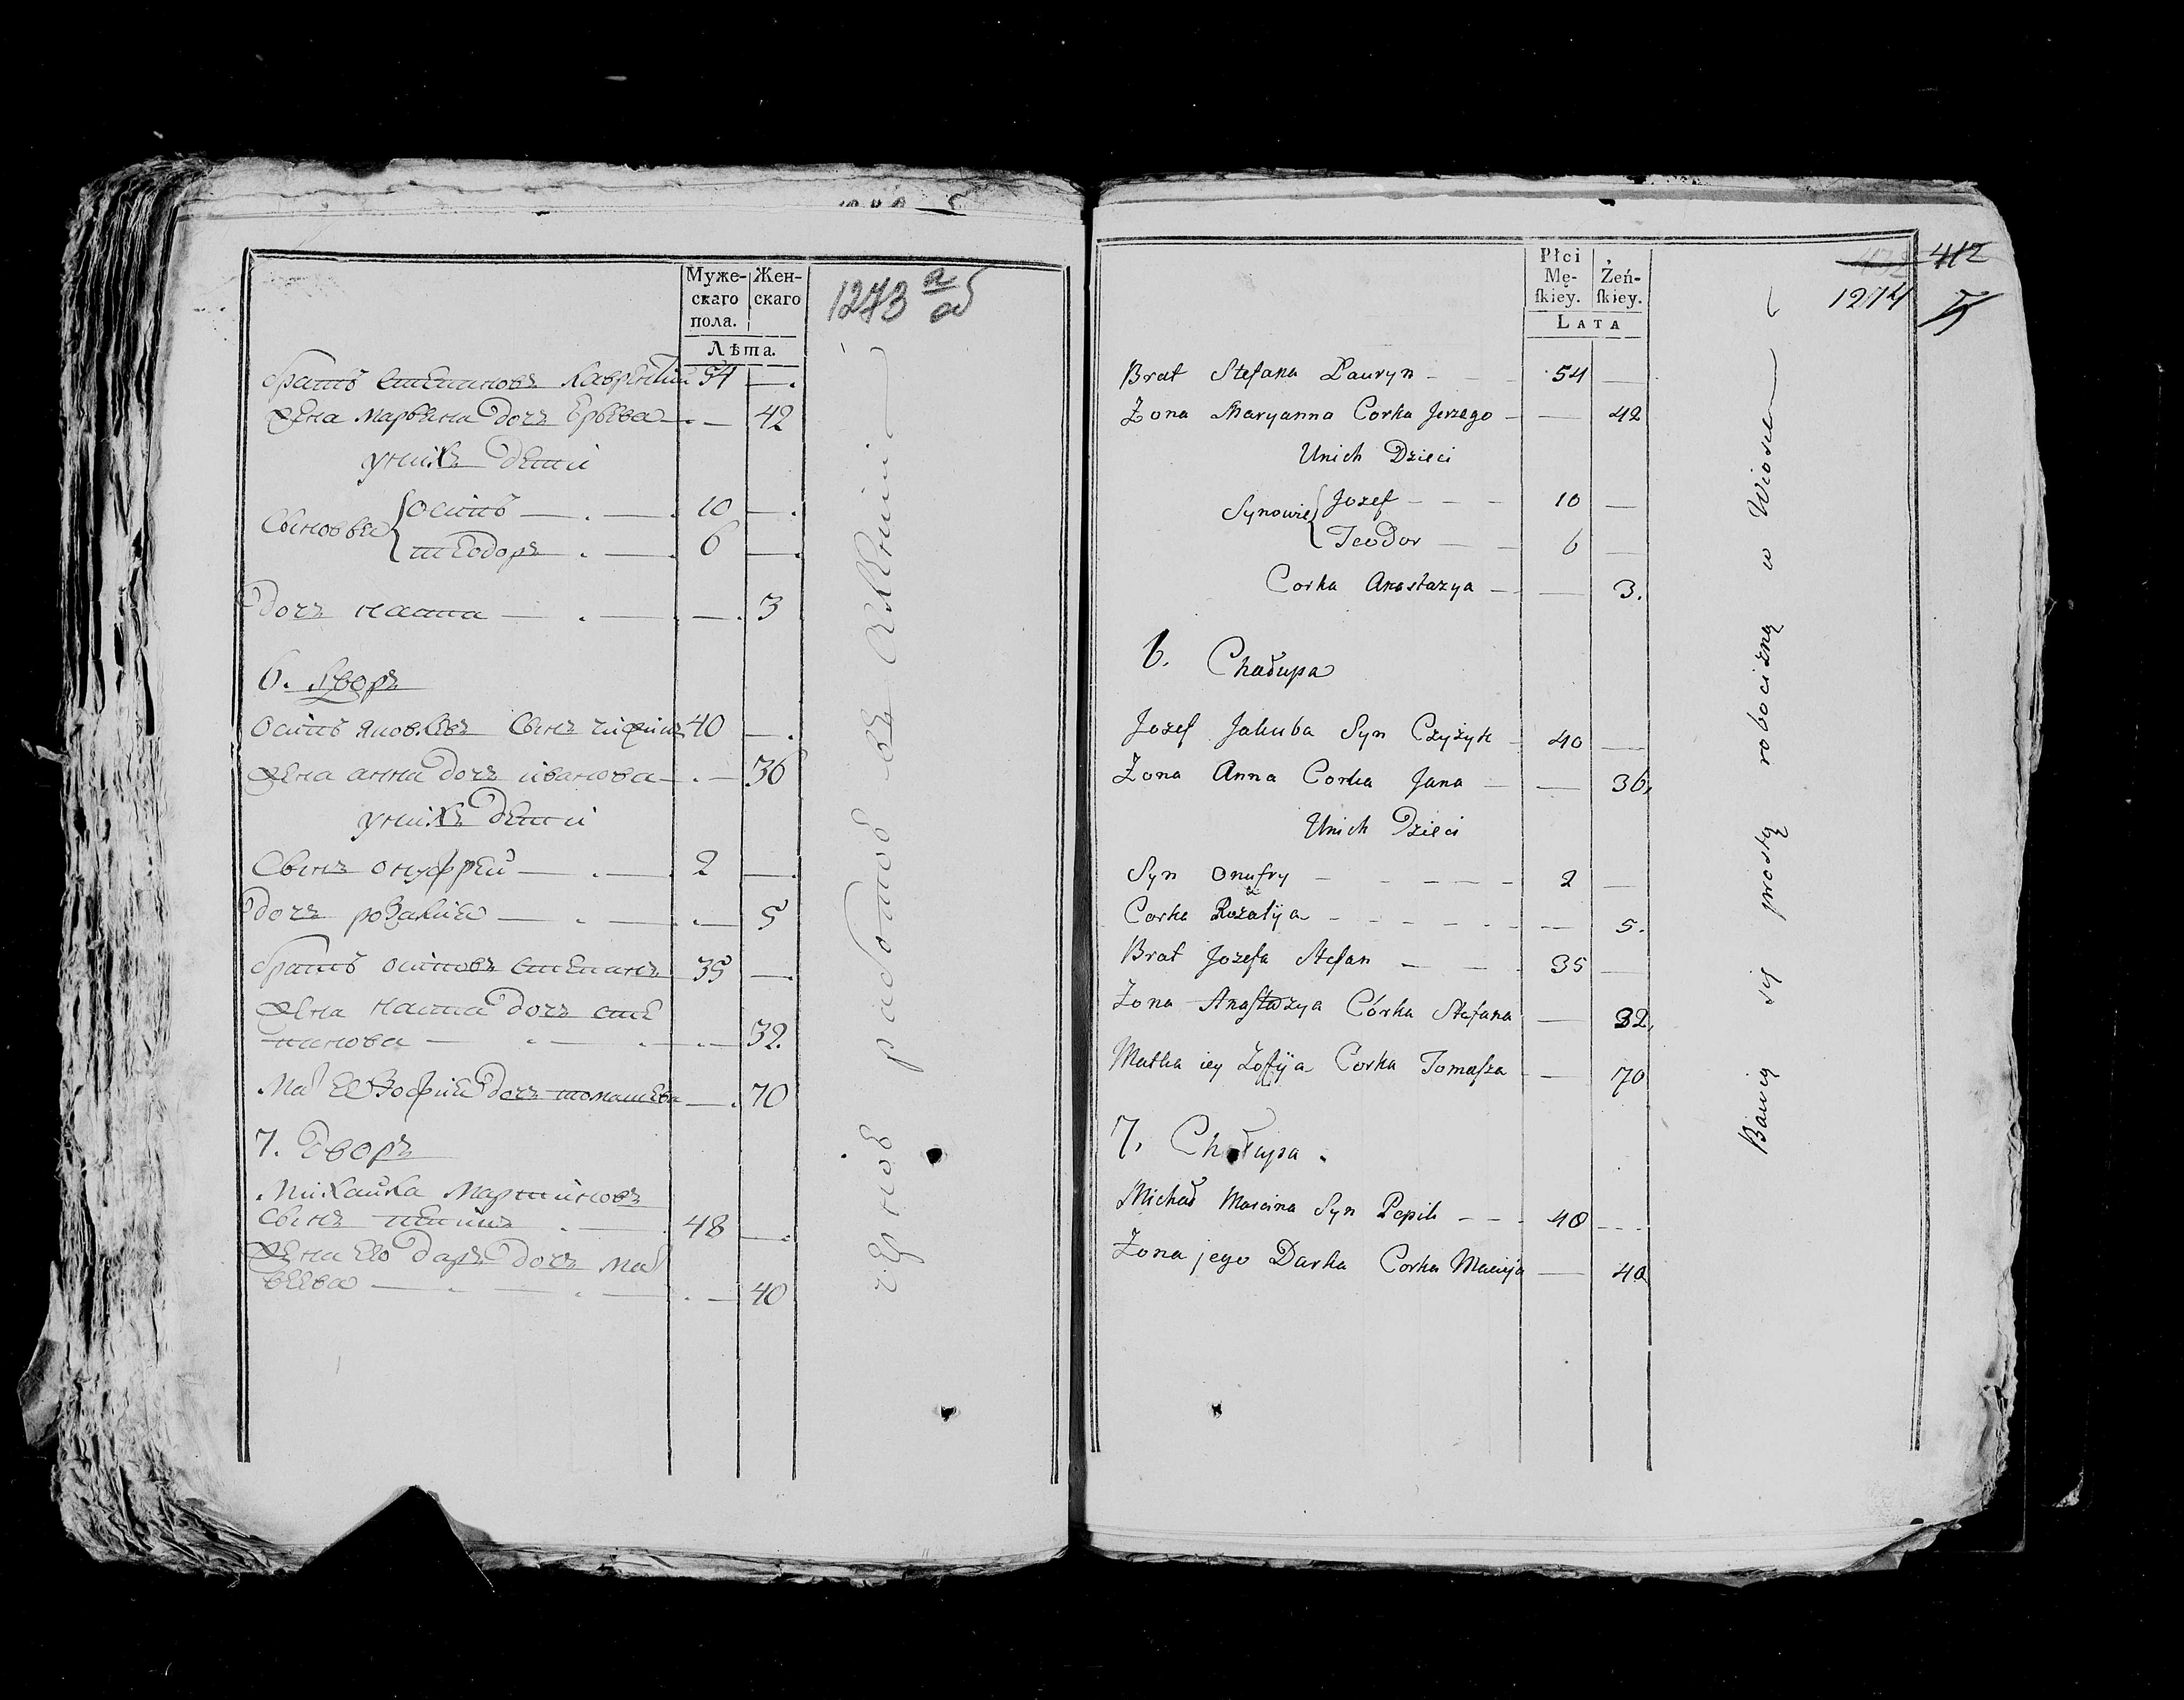 Муже-
скаго
пола.
Жен-
скаго
Лѣта.
1273
братъ степановъ Лаврентий 54 —
жена марьяна дочъ Ерьева — 42
унихъ дети
Сыновья
осипъ — 10 —
теодоръ — 6 —
дочъ наста — 3
6. Дворъ
осипъ яковлевъ сынъ чижикъ 40 —
жена анна дочъ иванова — 36
унихъ дети
Сынъ онуфрей — 2 —
дочъ розалия — 5
братъ осиповъ степанъ 35 —
жена наста дочъ сте
панова — 32
Ма Ее Зофия дочъ томашева — 70
7. Дворъ
Михайла мартиновъ
сынъ 48 —
жена Его даря дочъ ма
веева — 40
черною работою
Płci
Mę-
ſkiey.
Żeń-
ſkiey.
LATA
412
1274
Brat Stefana Lauryn — 54 —
Zona Maryanna Corka Jerzego — 42
Unich Dzieci
Synowie
Jozef — 10 —
Teodor — 6 —
Corka Anastazya — 3.
6. Chałupa
Jozef Jakuba Syn Czyżyk 40 —
Zona Anna Corka Jana — 36,
Unich Dzieci
Syn Onufry — 2 —
Corka Rozalija — 5.
Brat Jozefa Stefan — 35 —
Zona Anaſtazya Córka Stefana — 32,
Matka iey Zofija Corka Tomaſza — 70
7. Chałupa.
Michał Marcina Syn Pepik — 48 —
Zona jego Darka Corka Macieja — 40
Bawią się prostą robocizną w Wiosce